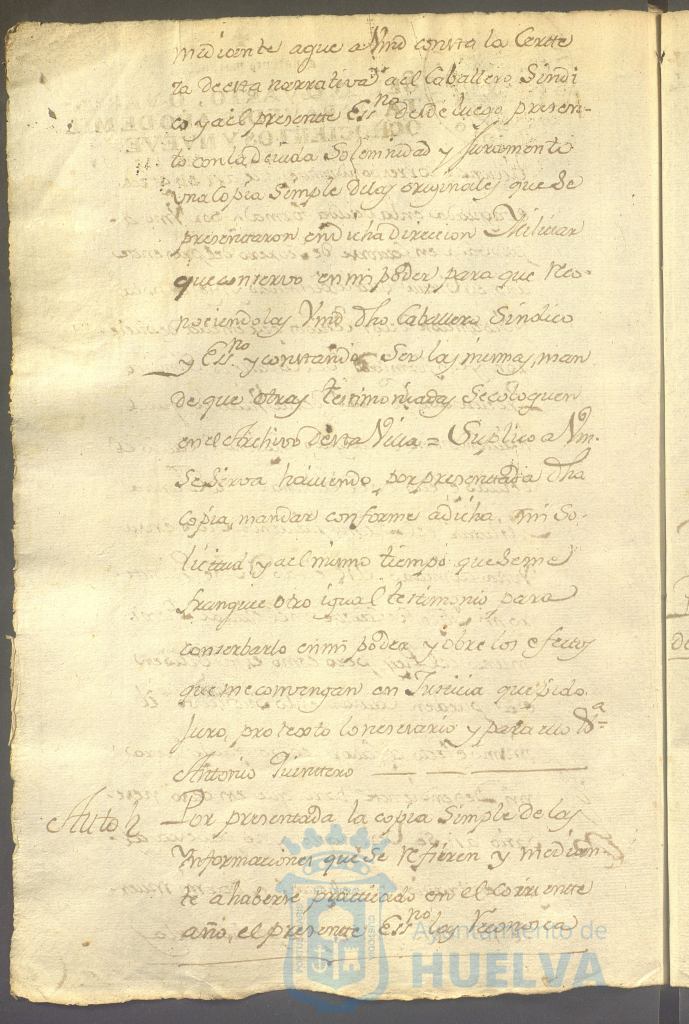 mediante aque a Vmd consta la Certe
za de esta narrativa y a el Caballero Sindi
co y a el presente Essno desde luego presen-
to con la devida Solemnidad y Juramento
una Copia Simple delas originales que se
presentaron en dicha direccion Militar
que conservo en mi poder para que reco-
nociendolas Vmd dho Caballero Sindico
y Essno y constando Ser las mismas, man
de que otras testimoniadas Se coloquen
en el Archivo de esta Villa = Suplico a Vm.
Se Sirva haviendo por presentada dha
copia, mandar conforme a dicha mi So-
licitud, y a el mismo tiempo que Se me
franquee otro igual testimonio para
conserbarlo en mi poder y obre los efectos
que me convengan en Justicia que pido
Juro, protexto lo nesesario y para ello Va
Antonio Quintero
Auto Por presentada la copia Simple de las
Ynformaciones que Se refieren y median-
te a haberse practicado en el corriente
año, el presente Essno las reconosca
Ayuntamiento de
HUELVA